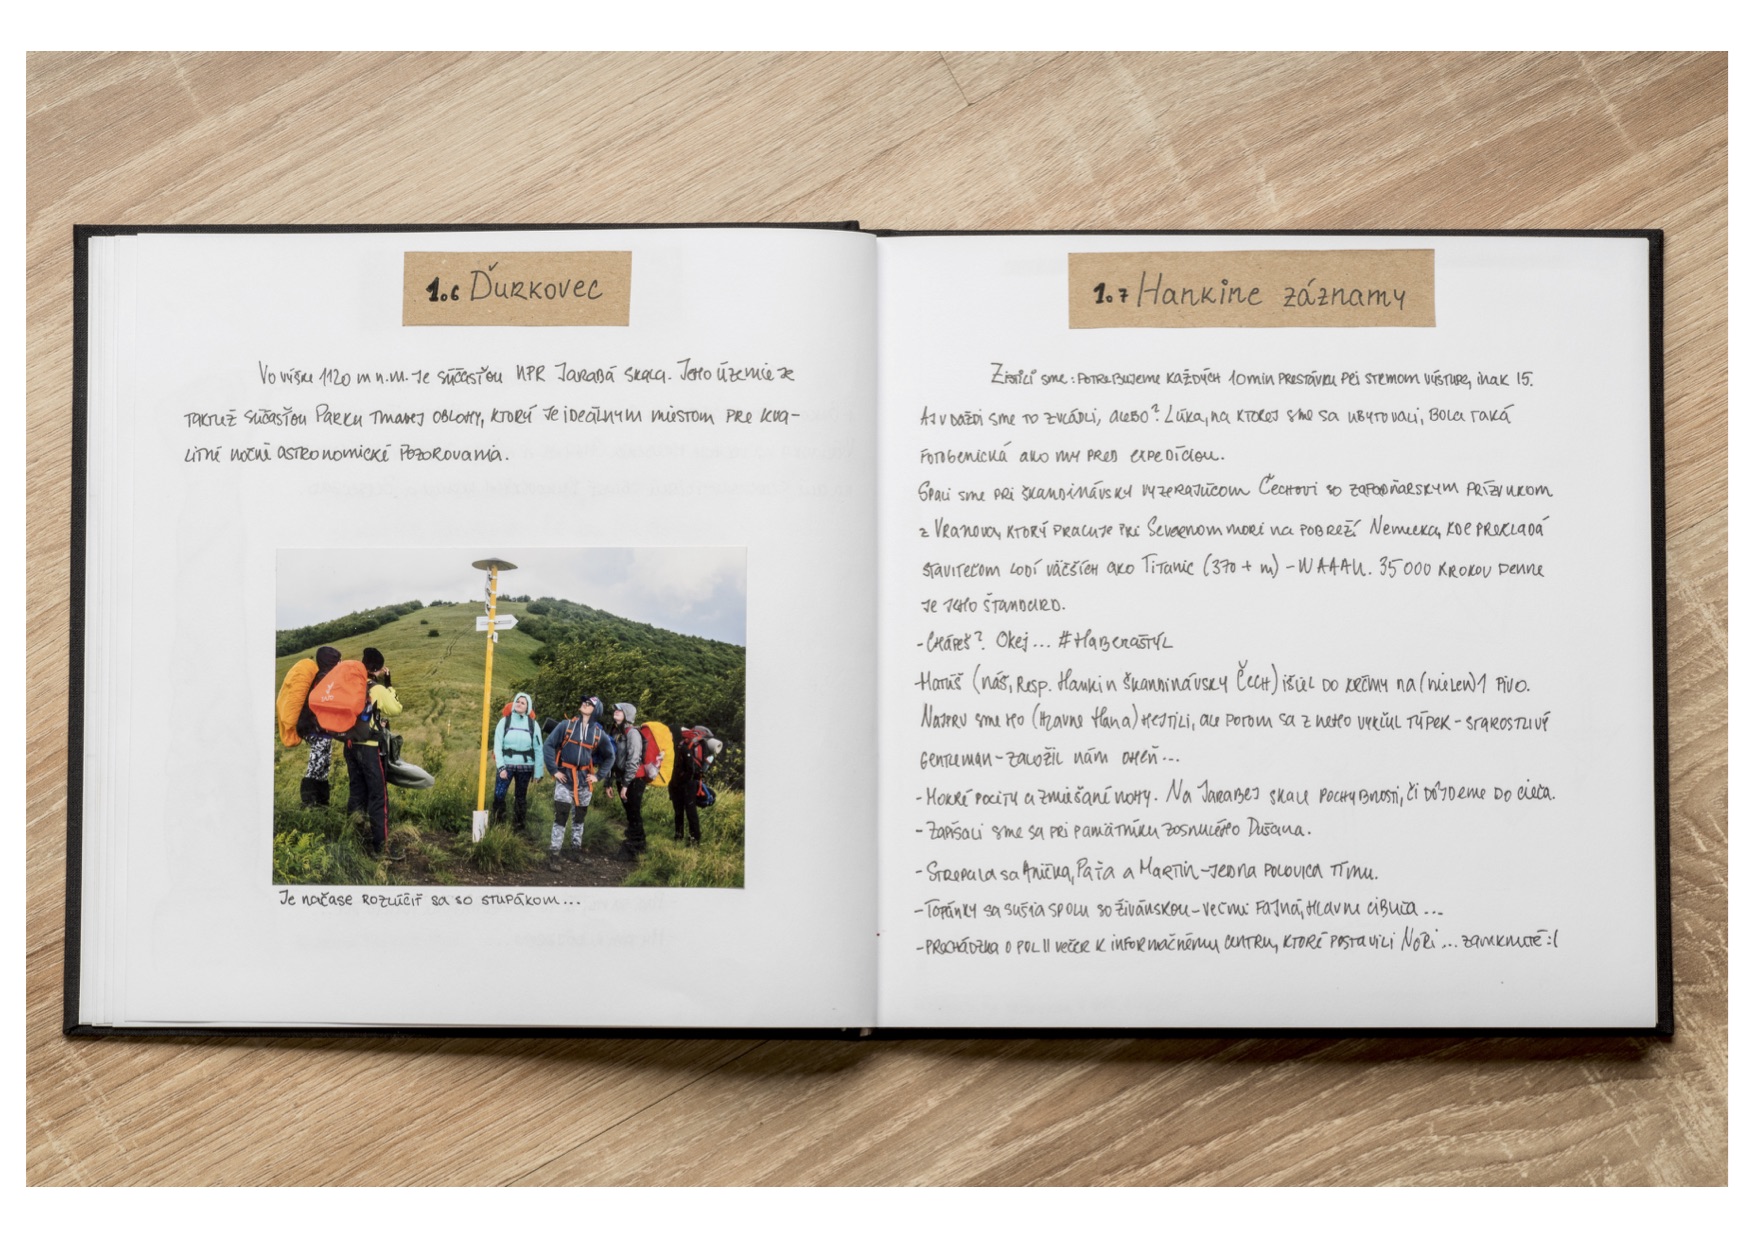 1.6 Ďurkovec
Vo výške 1120 m n.m. je súčasťou NPR Jarabá skala. Jeho územie je
taktiež súčasťou Parku tmavej oblohy, ktorý je ideálnym miestom pre kva-
litné nočné astronomické pozorovania.
Je načase rozlúčiť sa so stupákom...
1.7 Hankine záznamy
Zistili sme: potrebujeme každých 10 min prestávku pri strmom výstupe, inak 15.
Aj v daždi sme to zvládli, alebo? Lúka, na ktorej sme sa ubytovali, bola taká
fotogenická ako my pred expedíciou.
Spali sme pri škandinávsky vyzerajúcom Čechovi so západňarskym prízvukom
z Vranova, ktorý pracuje pri Severnom mori na pobreží Nemecka, kde prekladá
staviteľom lodí väčších ako Titanic (370 + m) - WAAAU. 35 000 krokov denne
je jeho štandard.
- Chápeš? Okej... #Haberaštýl
- Matúš (náš, resp. Hankin škandinávsky Čech) išiel do krčmy na (nielen) 1 pivo.
Najprv sme ho (hlavne Hana) hejtili, ale potom sa z neho vykľul týpek - starostlivý
gentleman - založil nám oheň...
- Mokré pocity a zmiešané nohy. Na Jarabej skale pochybnosti, či dôjdeme do cieľa.
- Zapísali sme sa pri pamätníku zosnulého Dušana.
- Strepala sa Anička, Paťa a Martin - jedna polovica tímu.
- Topánky sa sušia spolu so živánskou - veľmi fajná, hlavne cibuľa ...
- Prechádzka o pol 11 večer k informačnému centru, ktoré postavili Nóri ... zamknuté :(